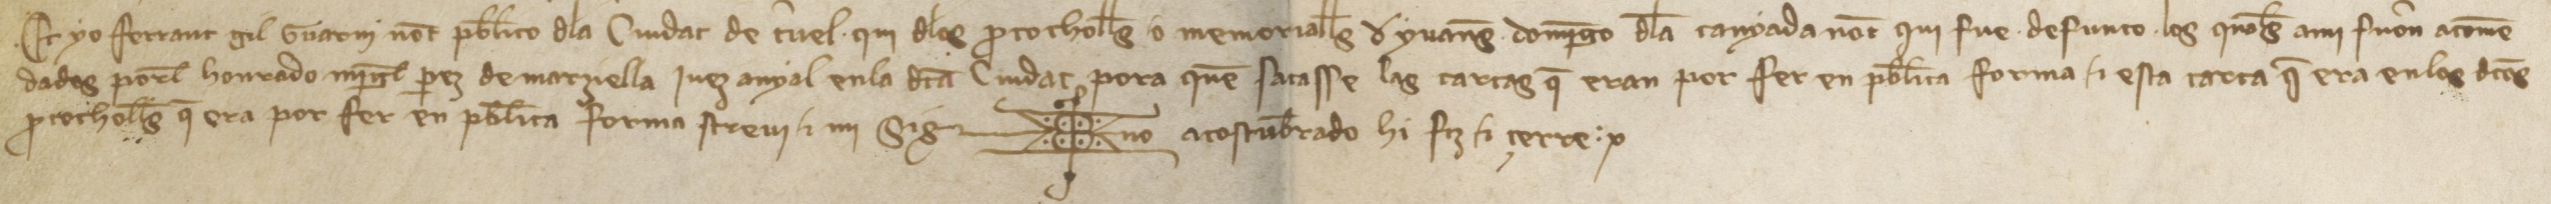 Et yo fferrant gil Guarin not publico dla Ciudat de teruel qui dlos protocholls o memorialls d yuans domingo dla canyada not qui fue defunto los quals ami fueron acomen
dados porel honrado miguel perez de marziella Juez anyal enla dta Ciudat pora que sacasse las cartas q eran por fer en publica forma et esta carta q era enlos dtos
protocholls q era por fer en publica forma screui et mi Sig no acostubrado hi fiz et çerre